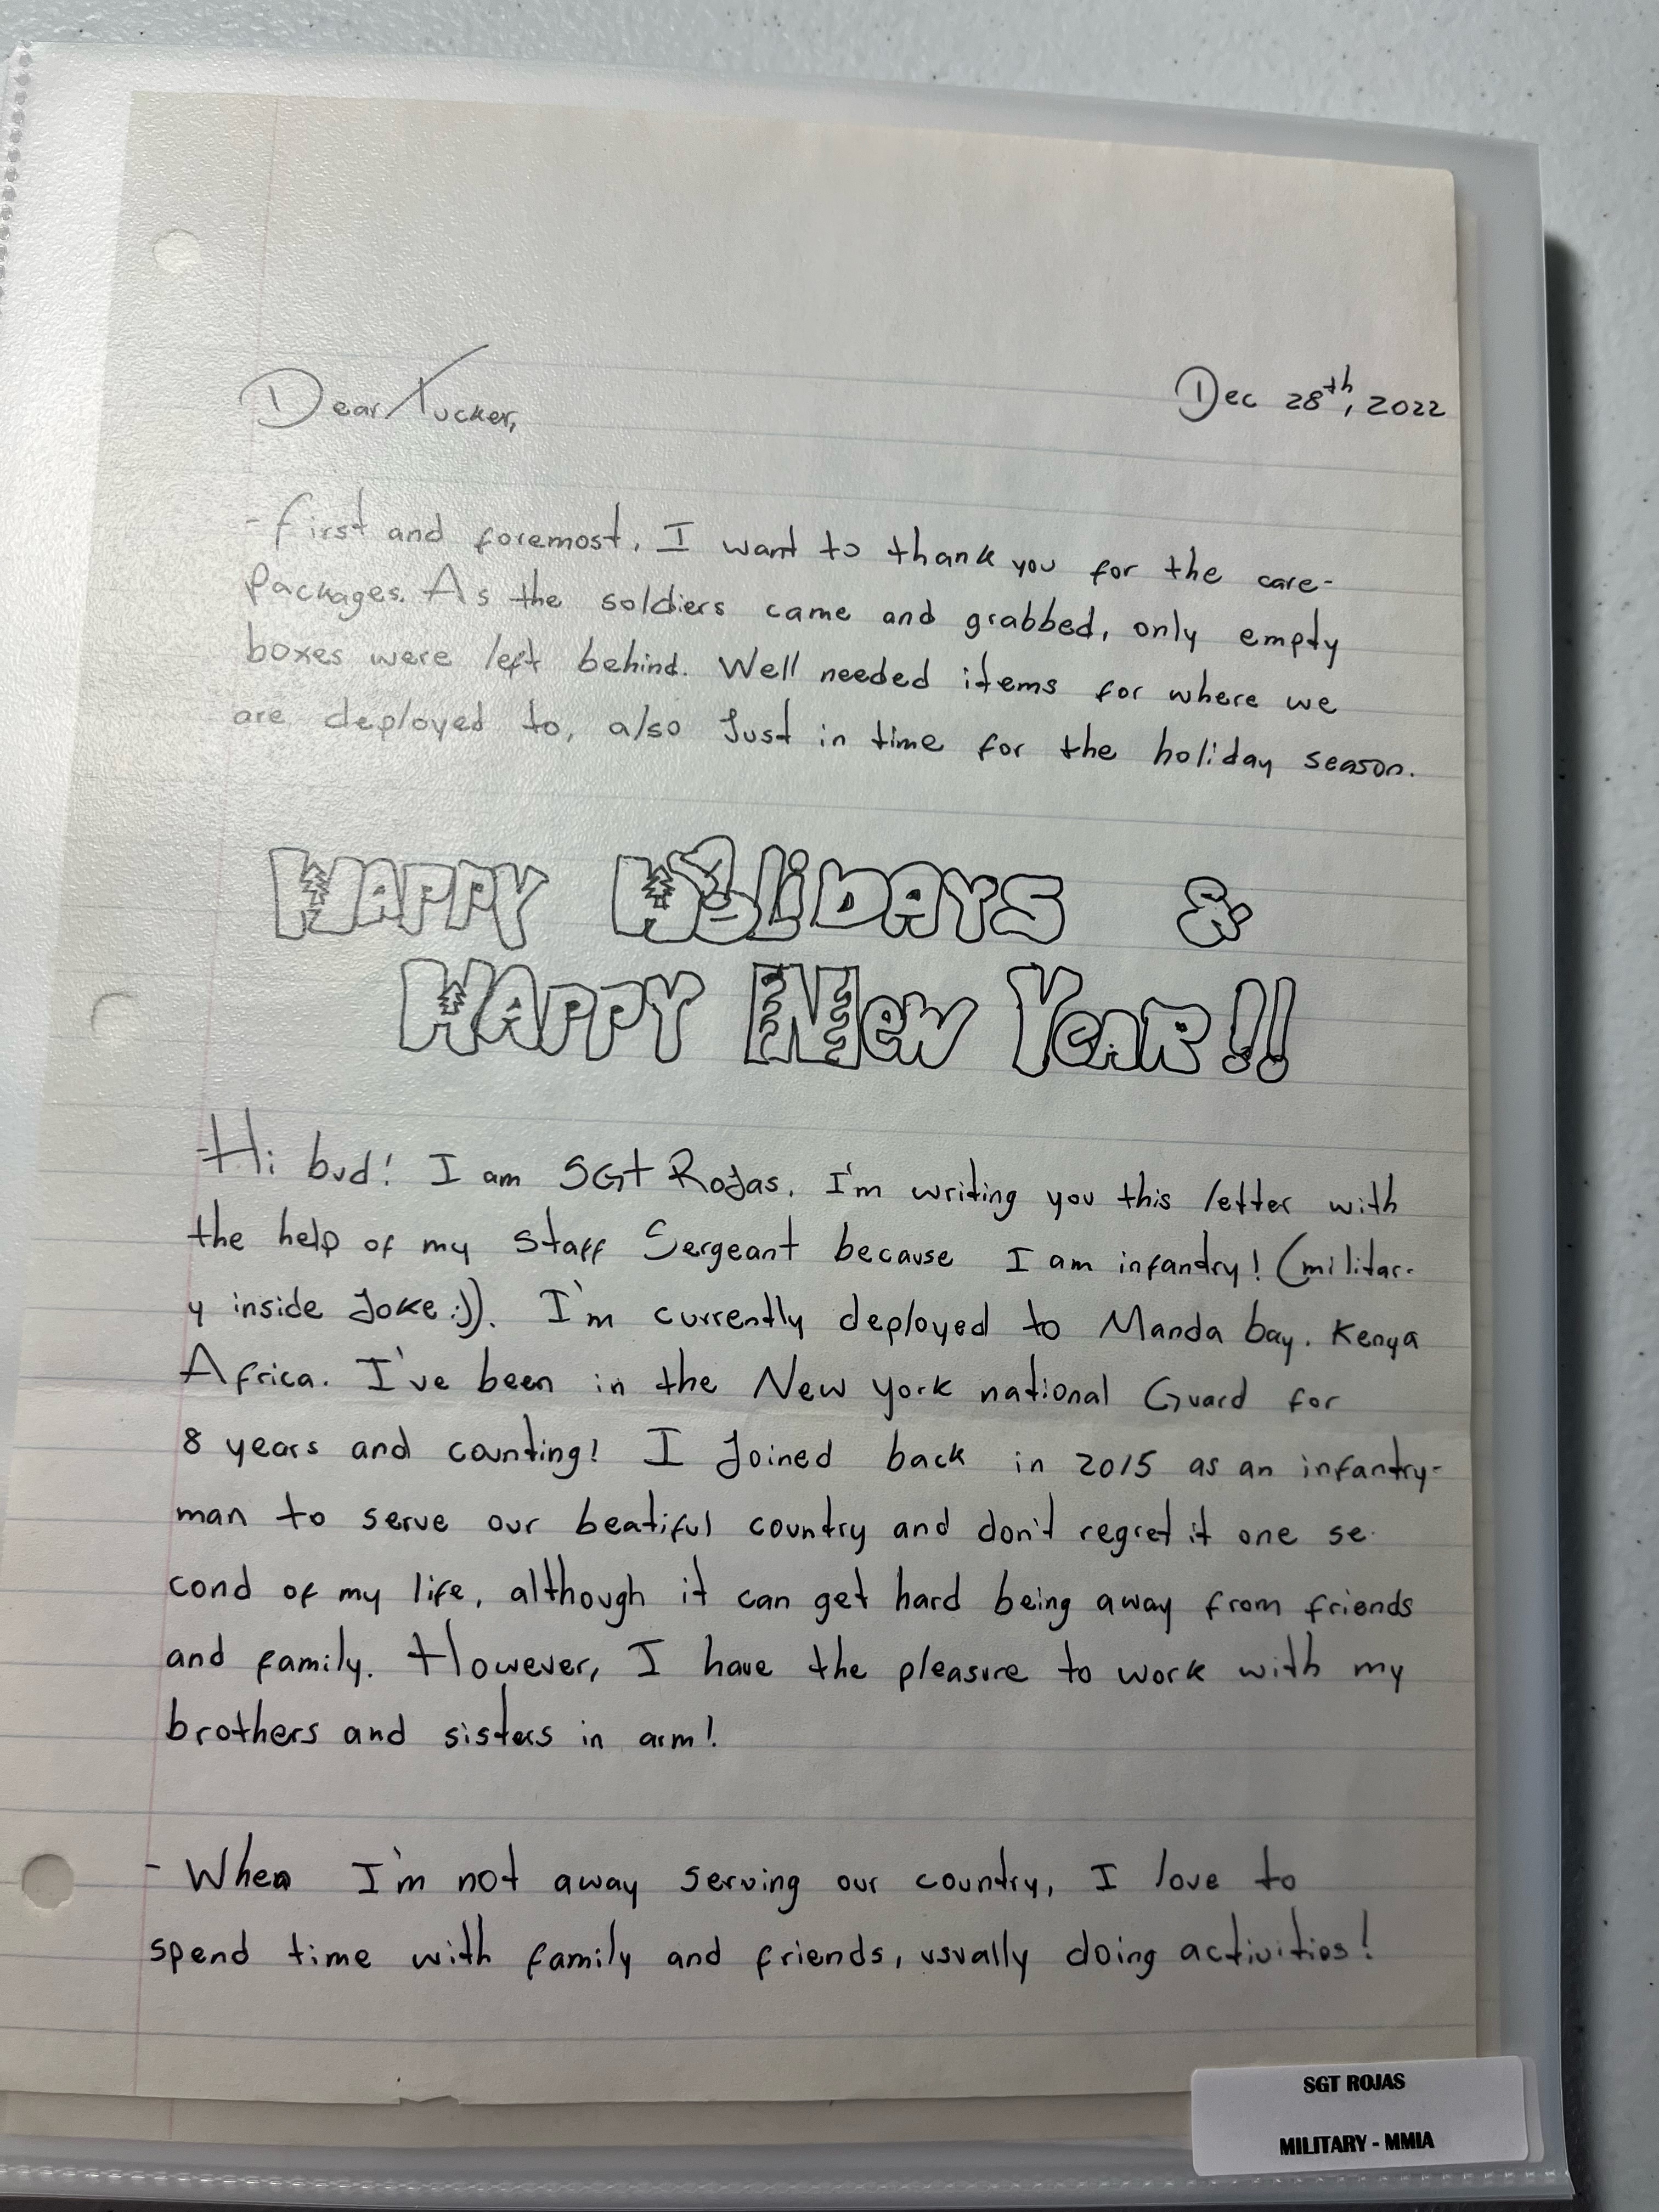 Dear Tucker,
Dec 28th, 2022
- first and foremost, I want to thank you for the care-
packages. As the soldiers came and grabbed, only empty
boxes were left behind. Well needed items for where we
are deployed to, also Just in time for the holiday season.
HAPPY HOLiDAYS &
HAPPY New YeAR!!
-Hi bud! I am SGt Rojas. I'm writing you this letter with
the help of my Staff Sergeant because I am infantry! (militar-
y inside Joke:)). I'm currently deployed to Manda bay. Kenya
Africa. I've been in the New york national Guard for
8 years and counting! I Joined back in 2015 as an infantry-
man to serve our beatiful country and don't regret it one se-
cond of my life, although it can get hard being away from friends
and family. However, I have the pleasure to work with my
brothers and sisters in arm!
- When I'm not away serving our country, I love to
spend time with family and friends, usually doing activities!
SGT ROJAS
MILITARY - MMIA